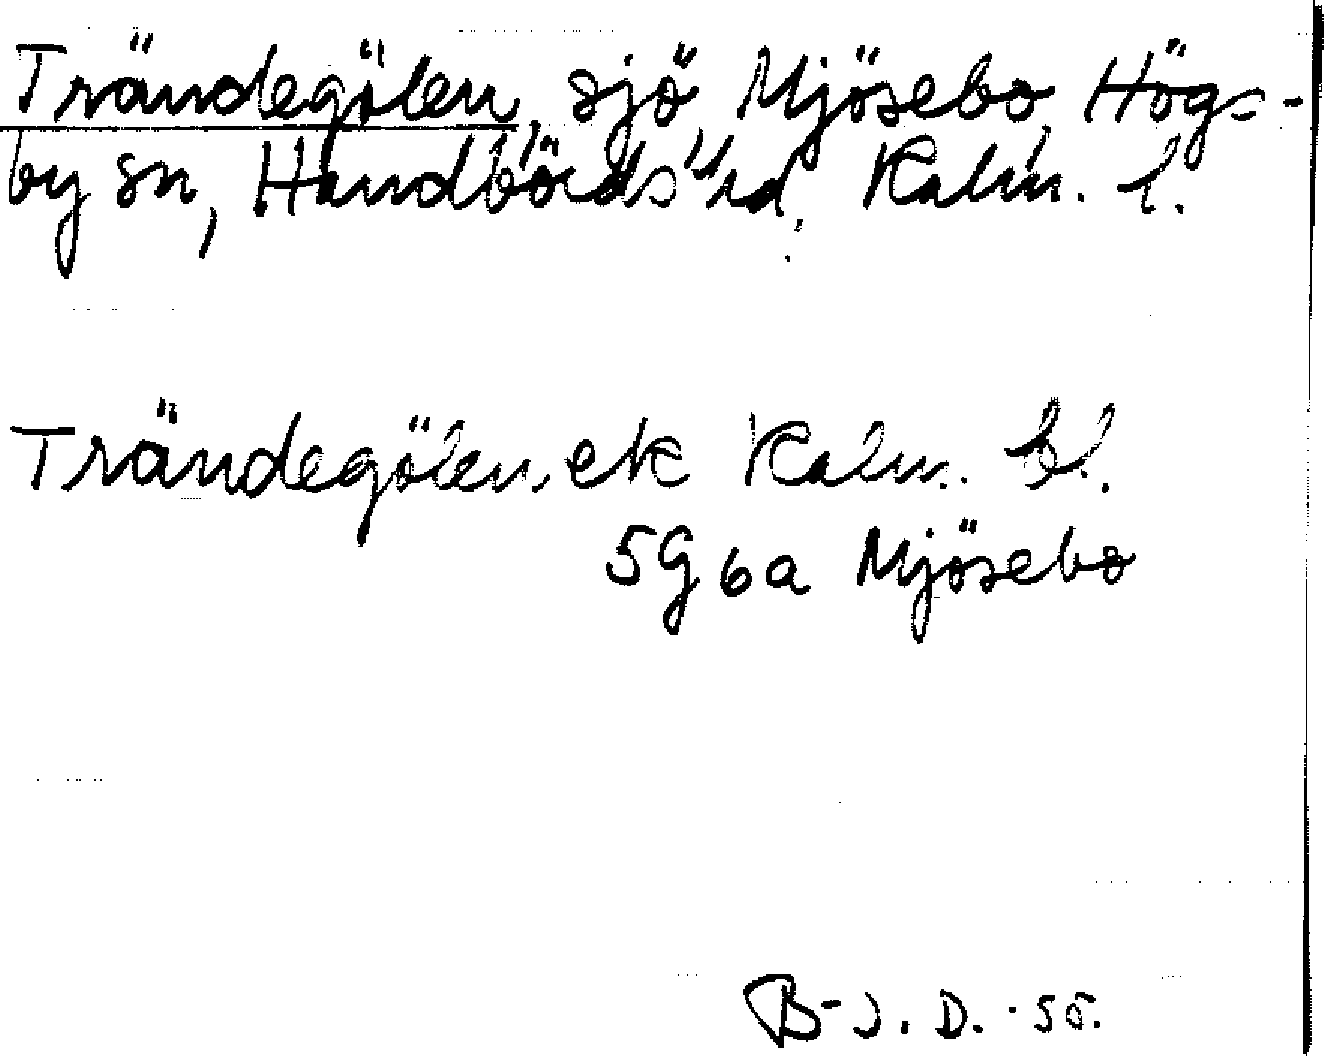 Trändegölen, sjö, Mjösebo, Högs-
by sn, Handbörds hd, Kalm. l.
Trändegölen, ek Kalm. bl.
5G6a Mjösebo
B-J.D. -55.